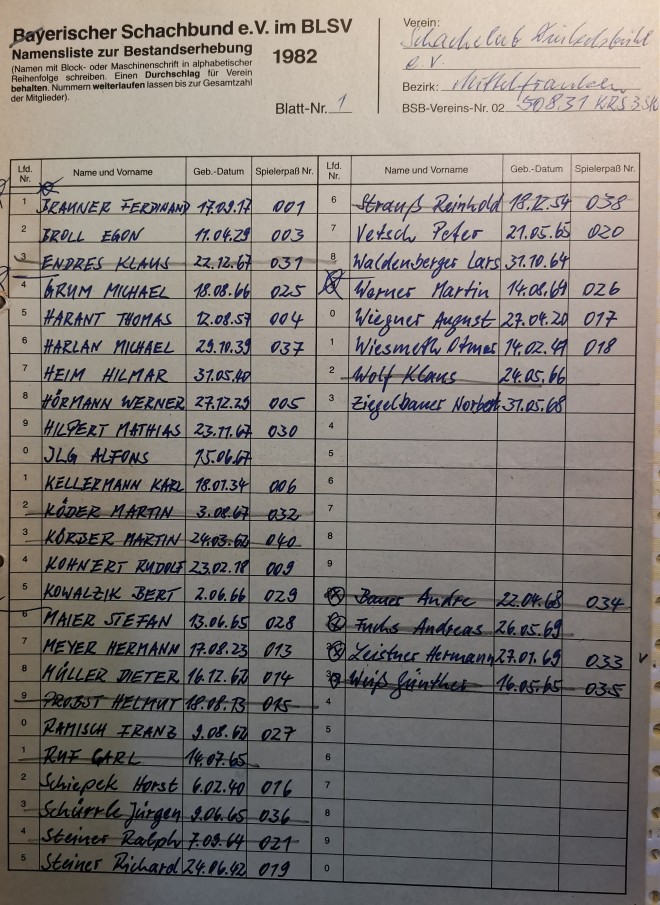 Bayerischer Schachbund e.V. im BLSV
Namensliste zur Bestandserhebung
(Namen mit Block- oder Maschinenschrift in alphabetischer
Reihenfolge schreiben. Einen Durchschlag für Verein
behalten. Nummern weiterlaufen lassen bis zur Gesamtzahl
der Mitglieder).
1982
Blatt-Nr. 1
Verein:
Schachclub Dinkelsbühl
e.V.
Bezirk: Mittelfranken
BSB-Vereins-Nr. 02 50831 KRS 3
Lfd. Nr. Name und Vorname Geb.-Datum Spielerpaß Nr.
1 BRAUNER FERDINAND 17.09.17 001
2 BROLL EGON 11.04.29 003
3 ENDRES KLAUS 22.12.67 031
4 GRUM MICHAEL 18.08.66 025
5 HARANT THOMAS 12.08.57 004
6 HARLAN MICHAEL 29.10.39 037
7 HEIM HILMAR 31.05.40
8 HÖRMANN WERNER 27.12.29 005
9 HILPERT MATHIAS 23.11.67 030
0 JLG ALFONS 15.06.67
1 KELLERMANN KARL 18.01.34 006
2 KÖDER MARTIN 3.08.67 032
3 KÖRBER MARTIN 24.03.62 040
4 KOHNERT RUDOLF 23.02.18 009
5 KOWALZIK BERT 2.06.66 029
6 MAIER STEFAN 13.06.65 028
7 MEYER HERMANN 17.08.23 013
8 MÜLLER DIETER 16.12.62 014
9 PROBST HELMUT 18.08.13 015
0 RAMISCH FRANZ 9.08.62 027
1 RUF CARL 14.07.65
2 Schiepek Horst 6.02.40 016
3 Schürrle Jürgen 9.06.65 036
4 Steiner Ralph 7.09.64 021
5 Steiner Richard 24.06.42 019
Lfd. Nr. Name und Vorname Geb.-Datum Spielerpaß Nr.
6 Strauß Reinhold 18.12.54 038
7 Vetsch Peter 21.05.65 020
8 Waldenberger Lars 31.10.64
Werner Martin 14.08.69 026
0 Wiegner August 27.04.20 017
1 Wiesmeth Otmar 14.02.47 018
2 Wolf Klaus 24.05.66
3 Ziegelbauer Norbert 31.05.68
4
5
6
7
8
9
Bauer Andre 22.04.68 034
Fuchs Andreas 26.05.69
Leistner Hermann 27.01.69 033
Weiß Günther 16.05.65 035
4
5
6
7
8
9
0